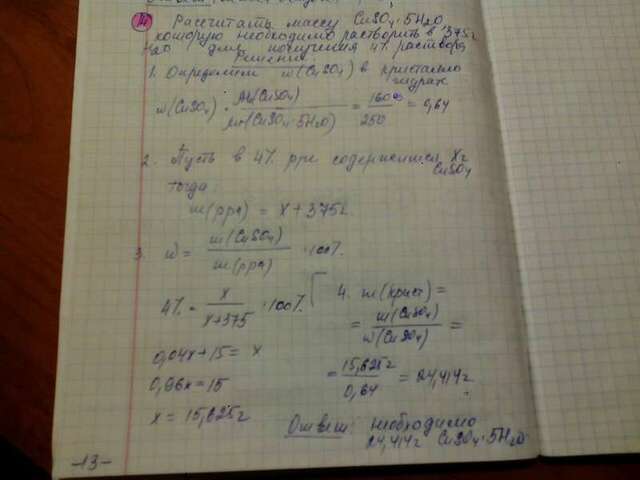 Рассчитать массу CuSO₄·5H₂O
которую необходимо растворить в 375г
H₂O для получения 4% раствора
Решение:
1. Определяем w(CuSO₄) в кристалло
гидрате
w(CuSO₄) = Mr(CuSO₄) / Mr(CuSO₄·5H₂O) = 160 / 250 = 0,64
2. Пусть в 4% рре содержится Xг
CuSO₄
тогда
m(рра) = x + 375г.
3. w = m(CuSO₄) / m(рра) ·100%
4% = x / x+375 ·100%
0,04x+15 = x
0,96x = 15
x = 15,625г
4. m(крист) =
= m(CuSO₄) / w(CuSO₄) =
= 15,625г / 0,64 = 24,414г
Ответ: необходимо
24,414г CuSO₄·5H₂O
-13-